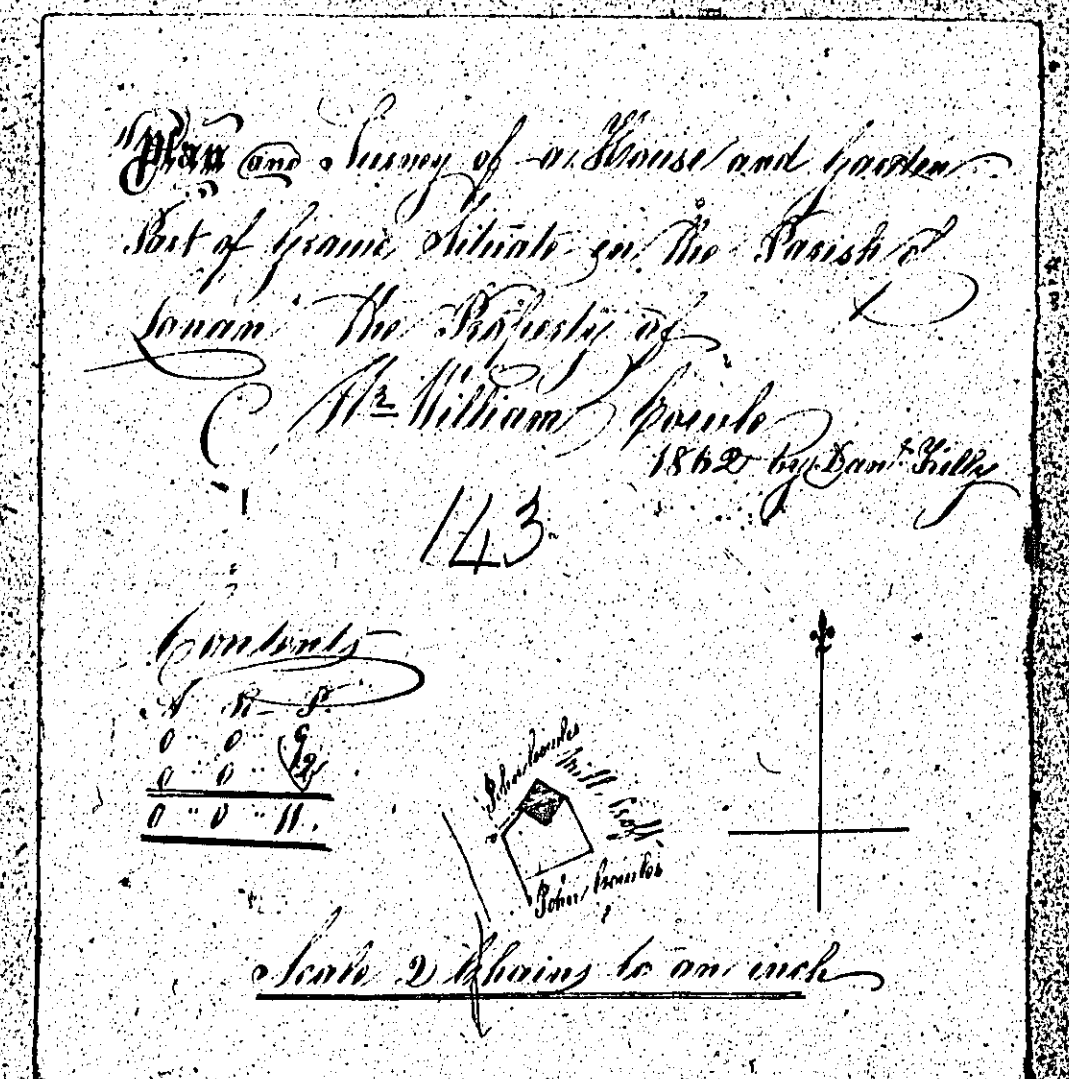 Plan and Survey of a House and Garden
Part of Situate in the Parish of
Lonan The Property of
Mr William
1862 by Danl
143
Contents
A R P
0 " 0 " 9
0 " 0 " 2
0 " 0 " 11.
John
Mill Croft
John
Scale 2 Chains to an inch